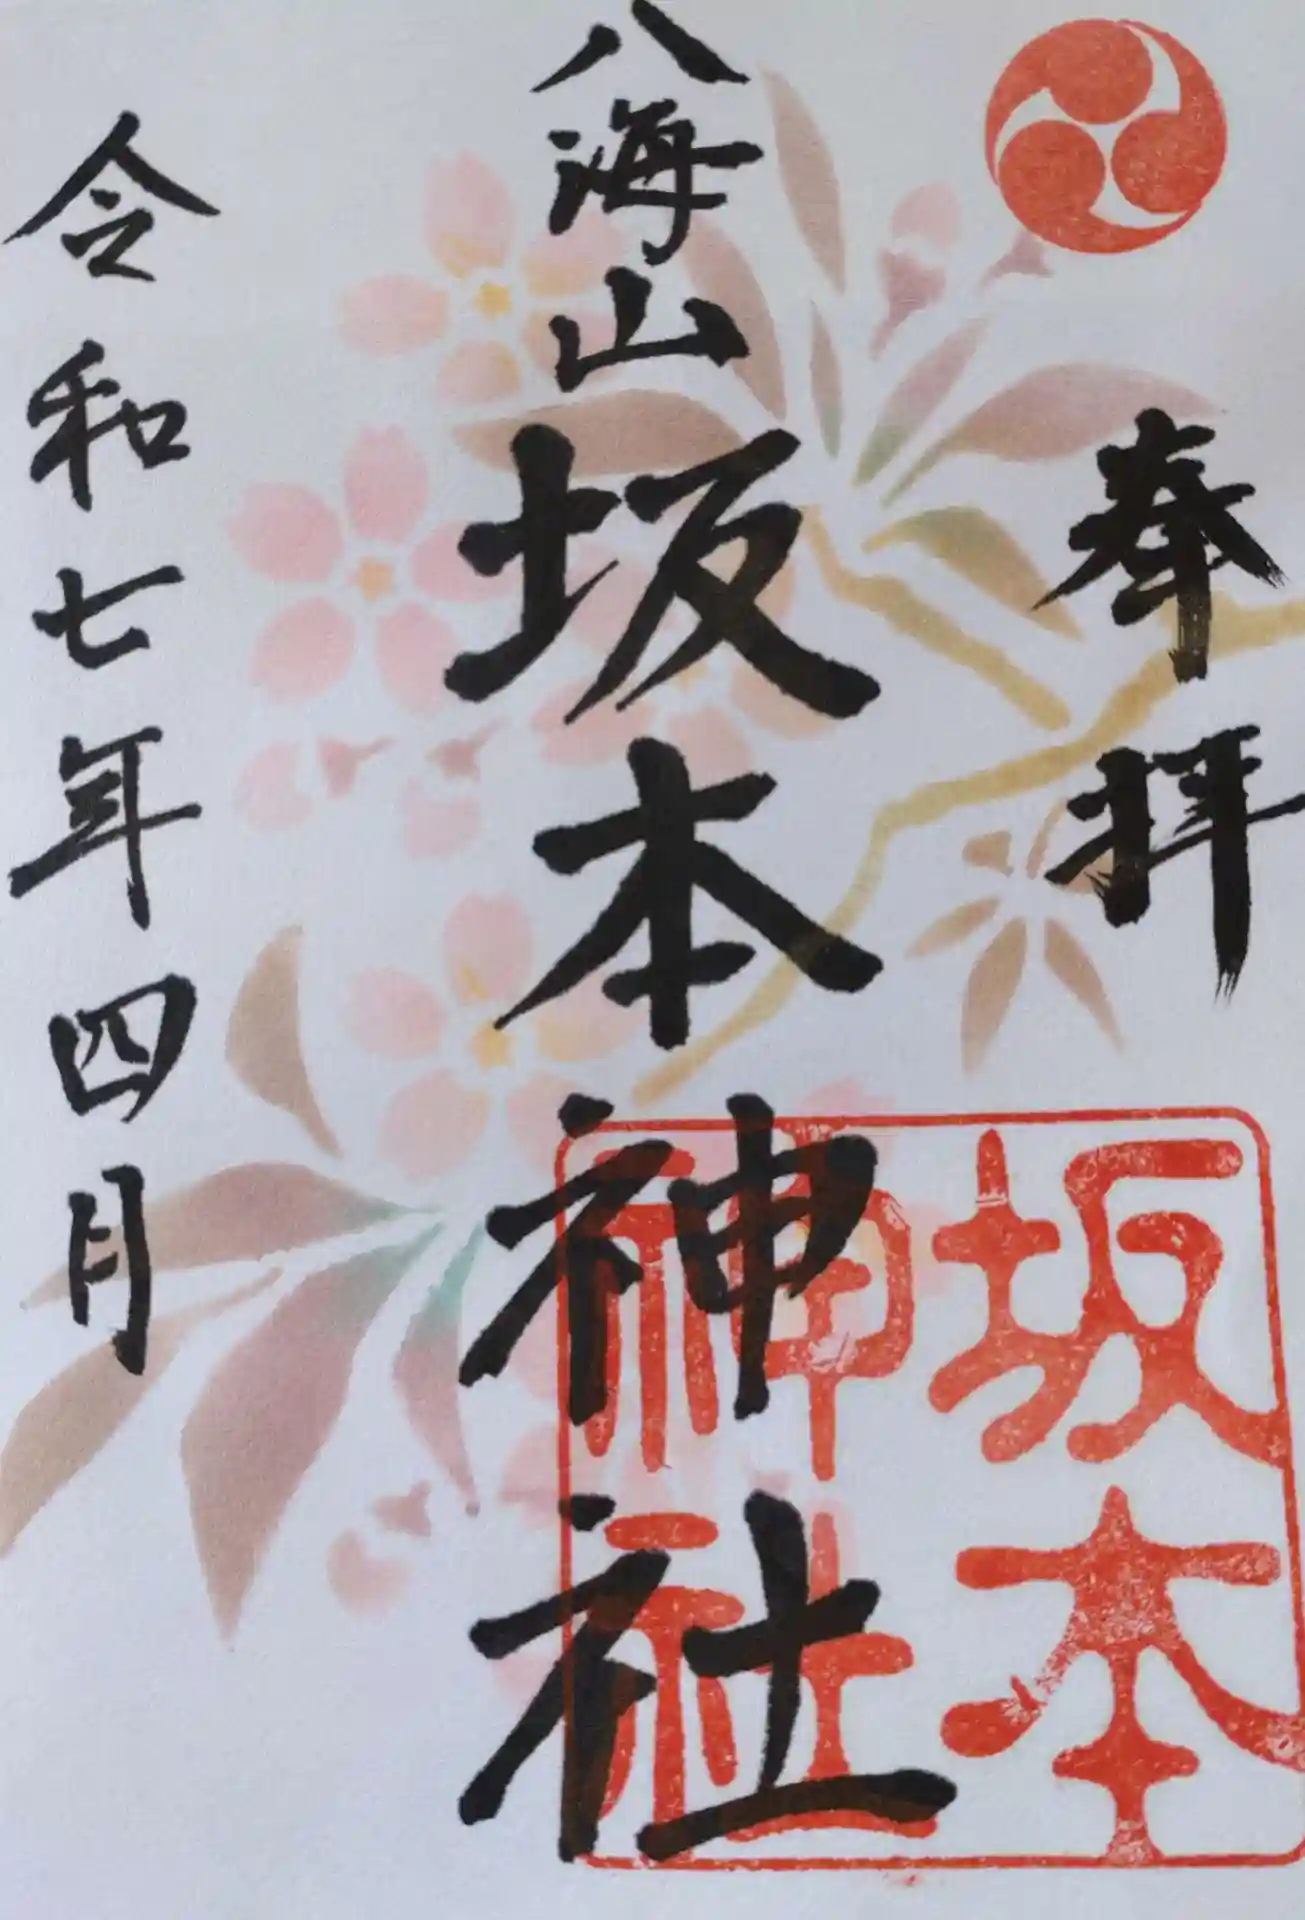 奉拝
八海山坂本神社
令和七年四月
坂本
神社